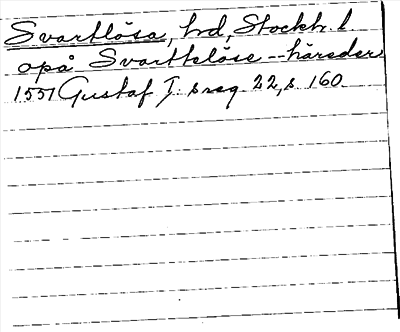 Svartlösa, hd, Stockh. l
opå Svarttelöse -- häreder
1551 Gustaf I. s reg. 22, s 160.